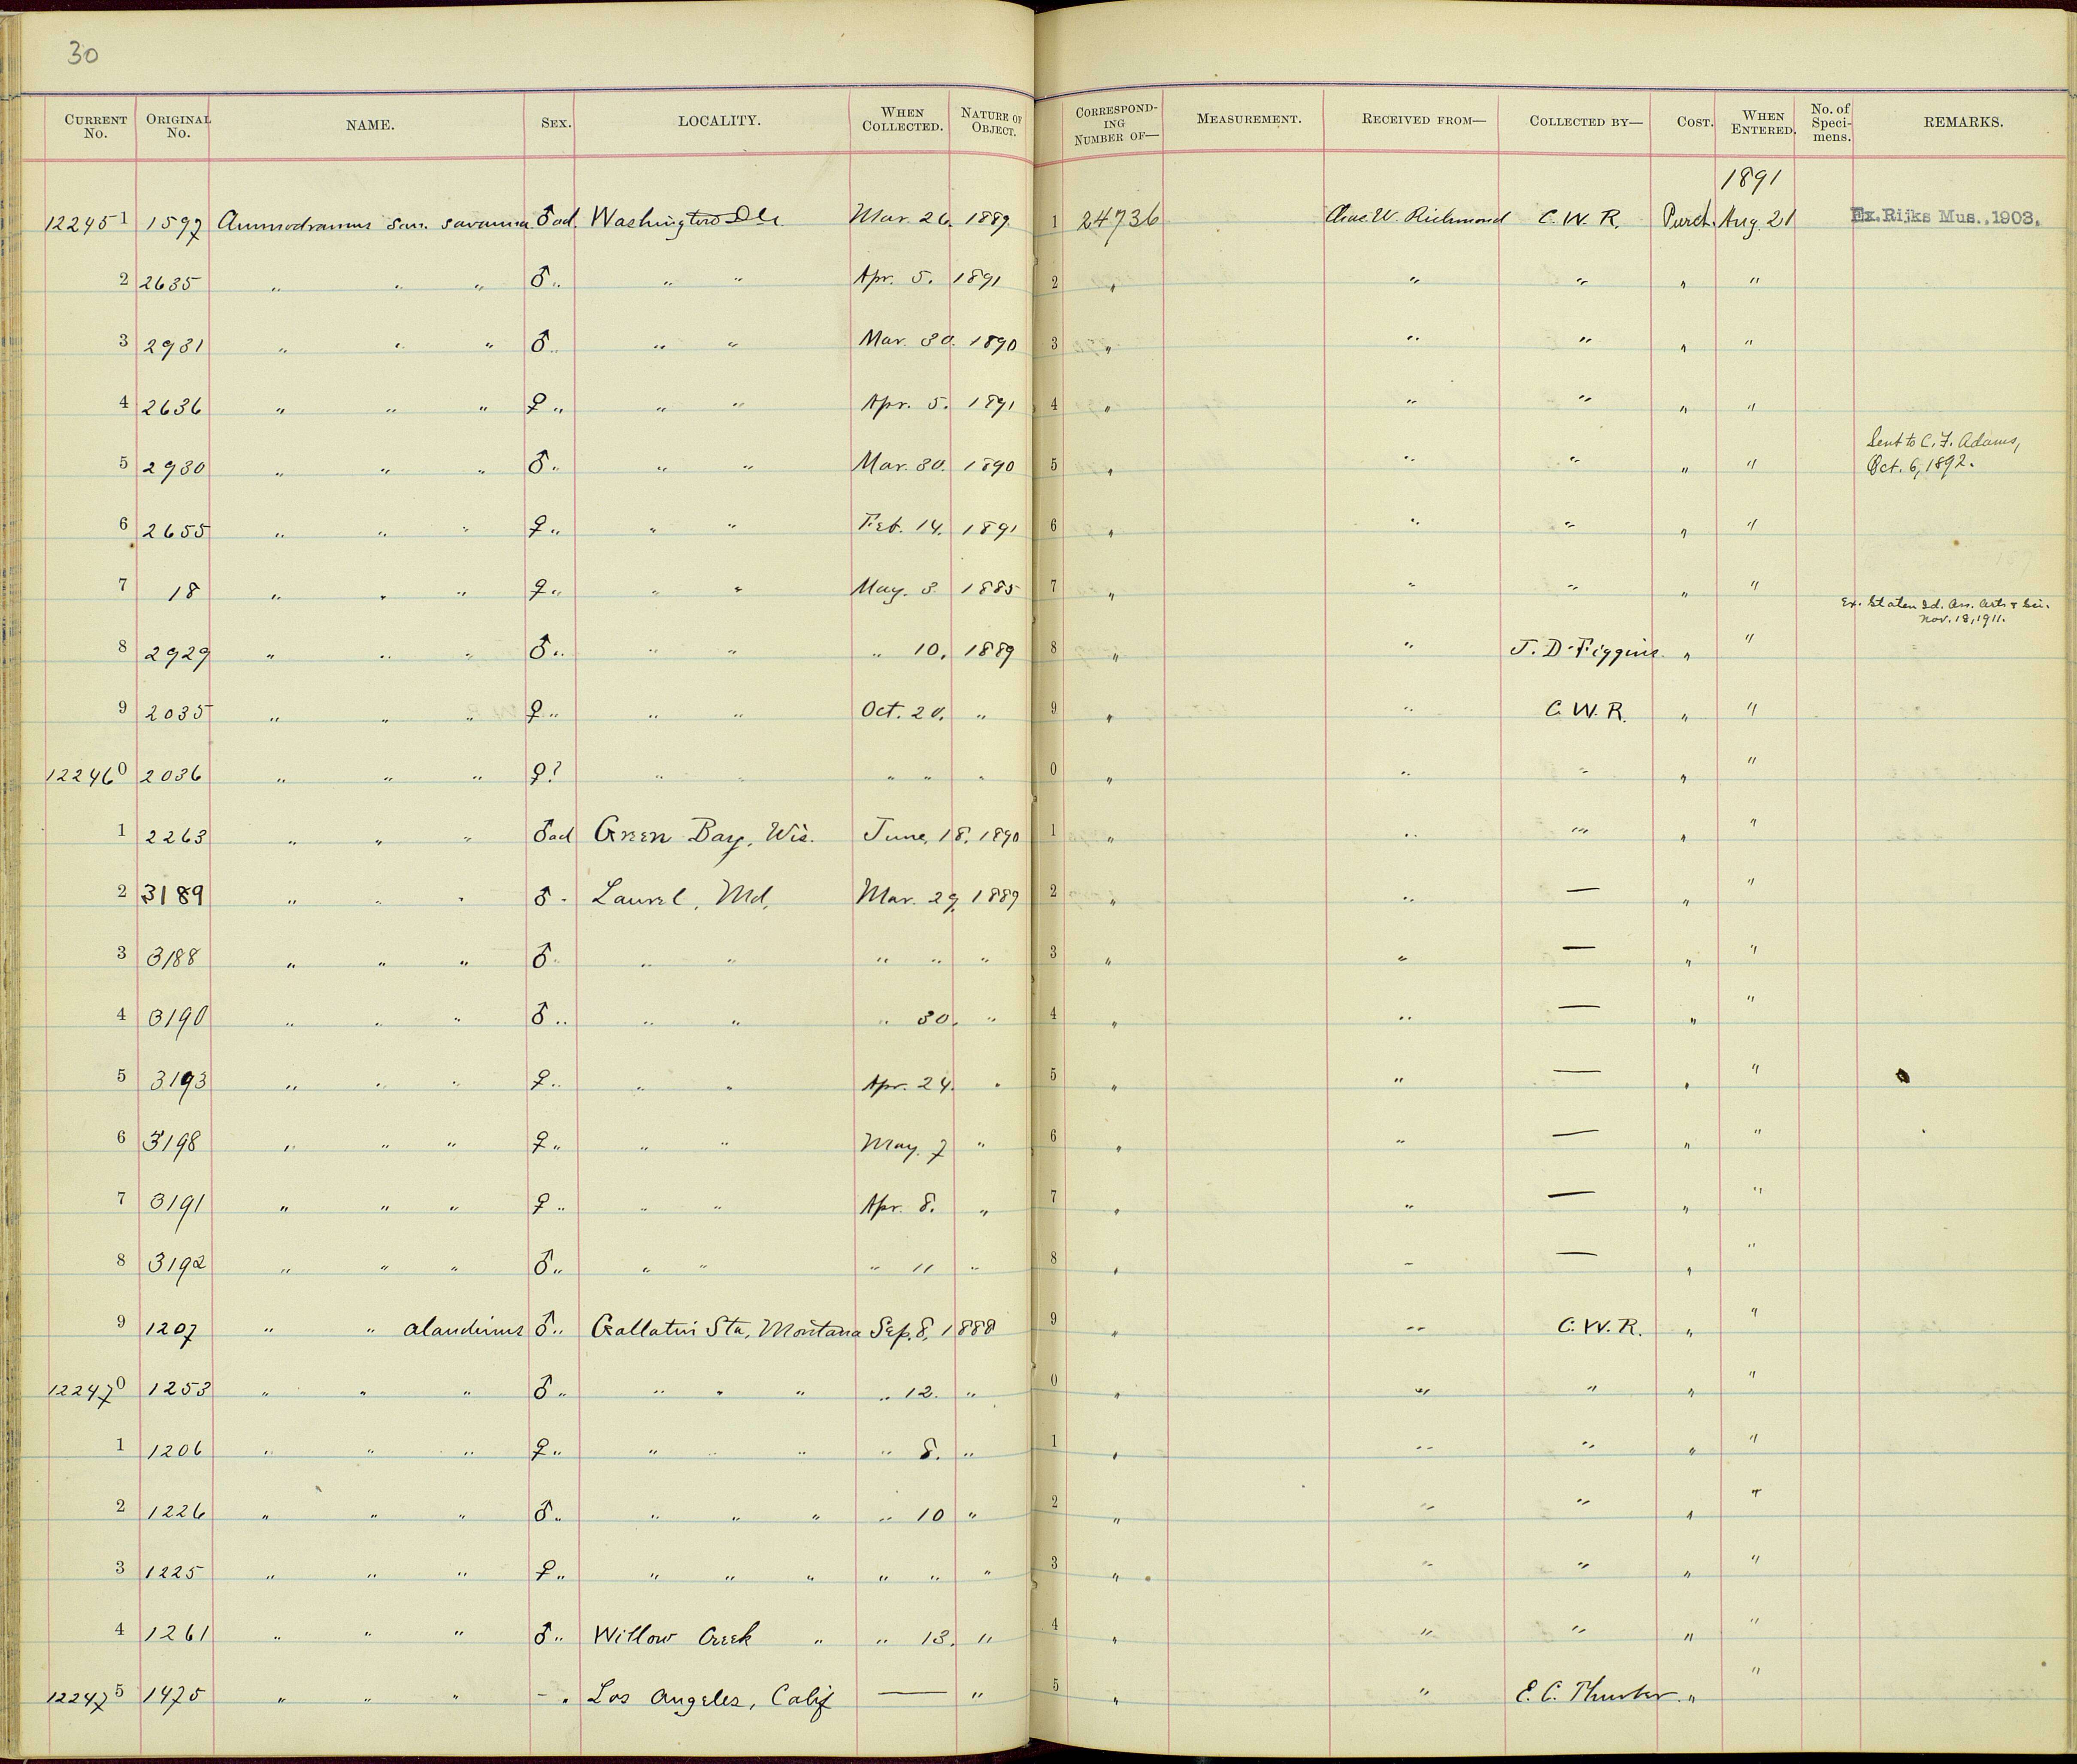 30
CURRENT No. ORIGINAL No. NAME. SEX. LOCALITY. WHEN COLLECTED. NATURE OF OBJECT. CORRESPONDING NUMBER OF— MEASUREMENT. RECEIVED FROM— COLLECTED BY— COST. WHEN ENTERED. No. of Specimens. REMARKS.
1891
122451 1597 Ammodramus san. savanna ♂ad. Washington D.C. Mar. 26. 1889. 1 24736 Chas. W. Richmond C. W. R. Purch. Aug. 21 Ex. Rijks Mus., 1903.
2 2635 " " " ♂ " " " Apr. 5. 1891 2 " " " " "
3 2931 " " " ♂ " " " Mar. 30. 1890 3 " " " " "
4 2636 " " " ♀ " " " Apr. 5. 1891 4 " " " " "
5 2930 " " " ♂ " " " Mar. 30. 1890 5 " " " " " Sent to C. F. Adams, Oct. 6, 1892.
6 2655 " " " ♀ " " " Feb. 14. 1891 6 " " " " "
7 18 " " " ♀ " " " May. 3 1885 7 " " " " "
Ex. Staten Id. Ass. Arts & Sci. Nov. 18, 1911.
8 2929 " " " ♂ " " " " 10. 1889 8 " " J. D. Figgins " "
9 2035 " " " ♀ " " " Oct. 20. " 9 " " C. W. R. " "
122460 2036 " " " ♀? " " " " " 0 " " " " "
1 2263 " " " ♂ad Green Bay, Wis. June, 18. 1890 1 " " " " "
2 3189 " " " ♂ " Laurel, Md. Mar. 29. 1889 2 " " — " "
3 3188 " " " ♂ " " " " " " 3 " " — " "
4 3190 " " " ♂ " " " " 30. " 4 " " — " "
5 3193 " " " ♀ " " " Apr. 24. " 5 " " — " "
6 3198 " " " ♀ " " " May. 7 " 6 " " — " "
7 3191 " " " ♀ " " " Apr. 8. " 7 " " — " "
8 3192 " " " ♂ " " " " 11 " 8 " " — " "
9 1207 " " alaudinus ♂ " Gallatin Sta, Montana Sep. 8, 1888 9 " " C. W. R. " "
122470 1253 " " " ♂ " " " " " 12. " 0 " " " " "
1 1206 " " " ♀ " " " " " 8. " 1 " " " " "
2 1226 " " " ♂ " " " " " 10 " 2 " " " " "
3 1225 " " " ♀ " " " " " " " 3 " " " " "
4 1261 " " " ♂ " Willow Creek " " 13. " 4 " " " " "
122475 1475 " " " - " Los Angeles, Calif — " 5 " " E. C. Thurber " "